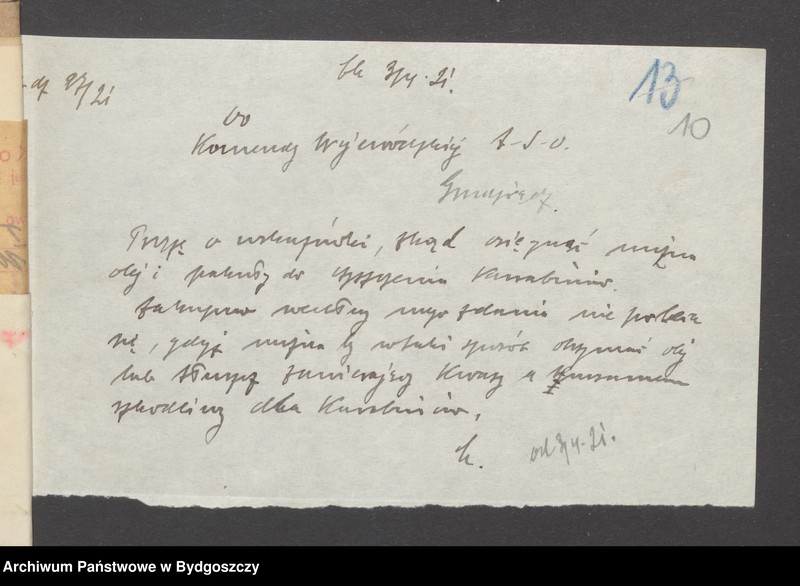 3/4. 21.
13
10
Do
Komendy Wojewódzkiej
Grudziądz.
Proszę o wskazówki, skąd osięgnąć można
olej i pakuły do czyszczenia karabinów.
Zakupno według mego zdania nie poleca
się, gdyż można by w taki sposób otrzymać olej
lub tłuszcz zawierający kwasy a
szkodliwy dla karabinów.
od 3/4. 21.
Archiwum Państwowe w Bydgoszczy